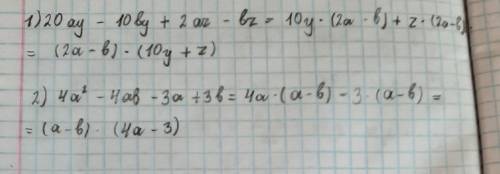 1) 20ay - 10by + 2az - bz = 10y · (2a - b) + z · (2a-b)
= (2a - b) · (10y + z)
2) 4a² - 4ab - 3a + 3b = 4a · (a - b) - 3 · (a - b) =
= (a - b) · (4a - 3)